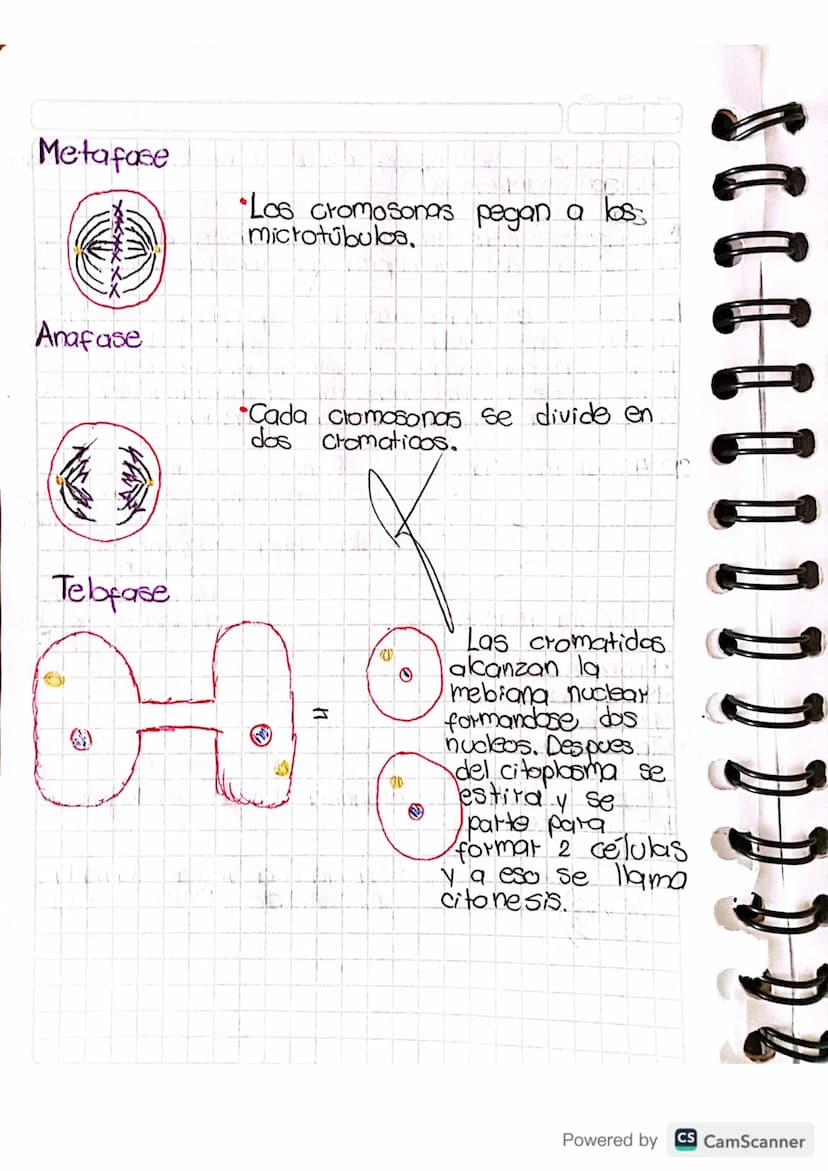 Metafase
•Los cromosonas pegan a los
microtúbulos.
Anafase
•Cada cromosonas se divide en
dos cromaticos.
Telofase
=
Las cromatidas
alcanzan la
mebrana nuclear
formandose dos
nucleos. Despues
del citoplasma se
estira y se
parte para
formar 2 células
y a eso se llama
citonesis.
Powered by CS CamScanner